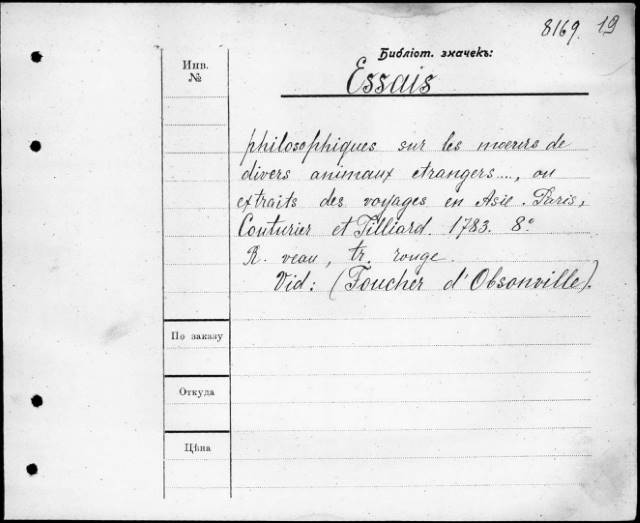 8169. 19
Библіот. значекъ:
Инв.
№
Essais
philosophiques sur les mœurs de
divers animaux etrangers...., ou
extraits des voyages en Asie. Paris,
Couturier et Tilliard. 1783. 8º
R. veau, tr. rouge.
Vid: (Foucher d'Obsonville).
По заказу
Откуда
Цѣна